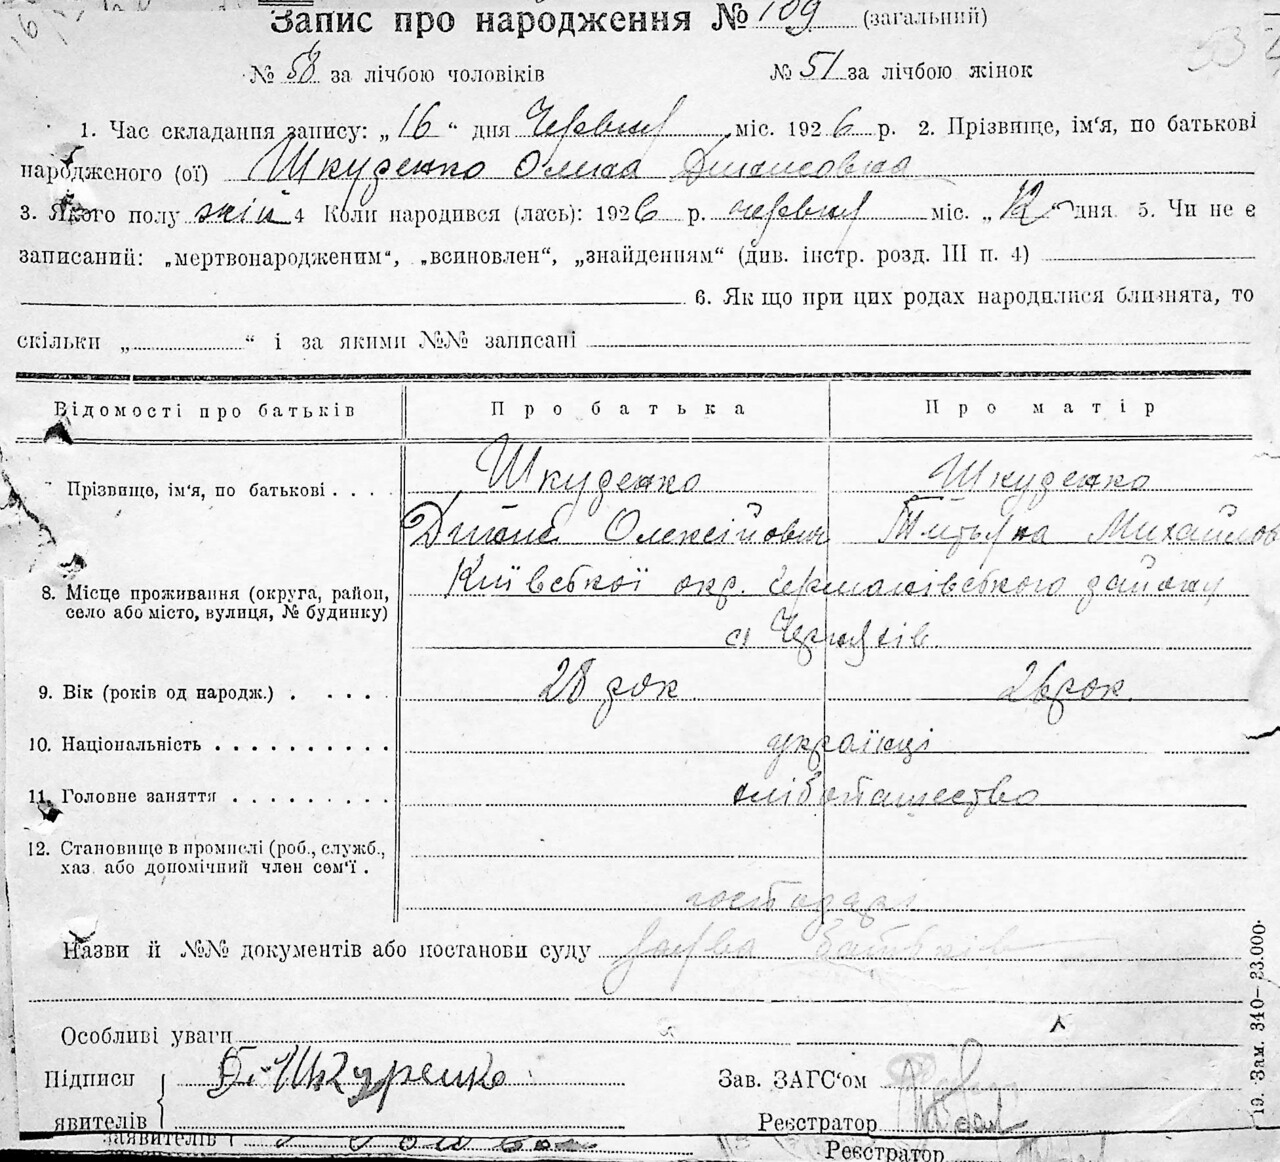 Запис про народження № 109 (загальний)
№ 58 за лічбою чоловіків № 51 за лічбою жінок
1. Час складання запису: „16“ дня Червня міс. 1926 р. 2. Прізвище, ім'я, по батькові
народженого (ої) Шкуденко Олена Денисовна
3. Якого полу жін 4 Коли народився (лась): 1926 р. червня міс. „12“ дня. 5. Чи не є
записаний: „мертвонародженим“, „всиновлен“, „знайденням“ (див. інстр. розд. III п. 4)
6. Як що при цих родах народилися близнята, то
скільки „ “ і за якими №№ записані
Відомості про батьків Про батька Про матір
Прізвище, ім'я, по батькові . . . . Шкуденко Шкуденко
Олексійович Титьяна Михайлов
8. Місце проживання (округа, район, село або місто, вулиця, № будинку) Київської окр. Германівського району
с Черняхів
9. Вік (років од народж.) . . . . . 28 рок 26 рок
10. Національність . . . . . . . . . . українці
11. Головне заняття . . . . . . . . . хліборобство
12. Становище в промислі (роб., служб.,
хаз. або допомічний член сем'ї . господарі
Назви й №№ документів або постанови суду Заява батьків
Особливі уваги
Підписи Д. Шкуренко Зав. ЗАГС'ом
явителів Реєстратор
заявителів Реєстратор
19. Зам. 340–23.000.